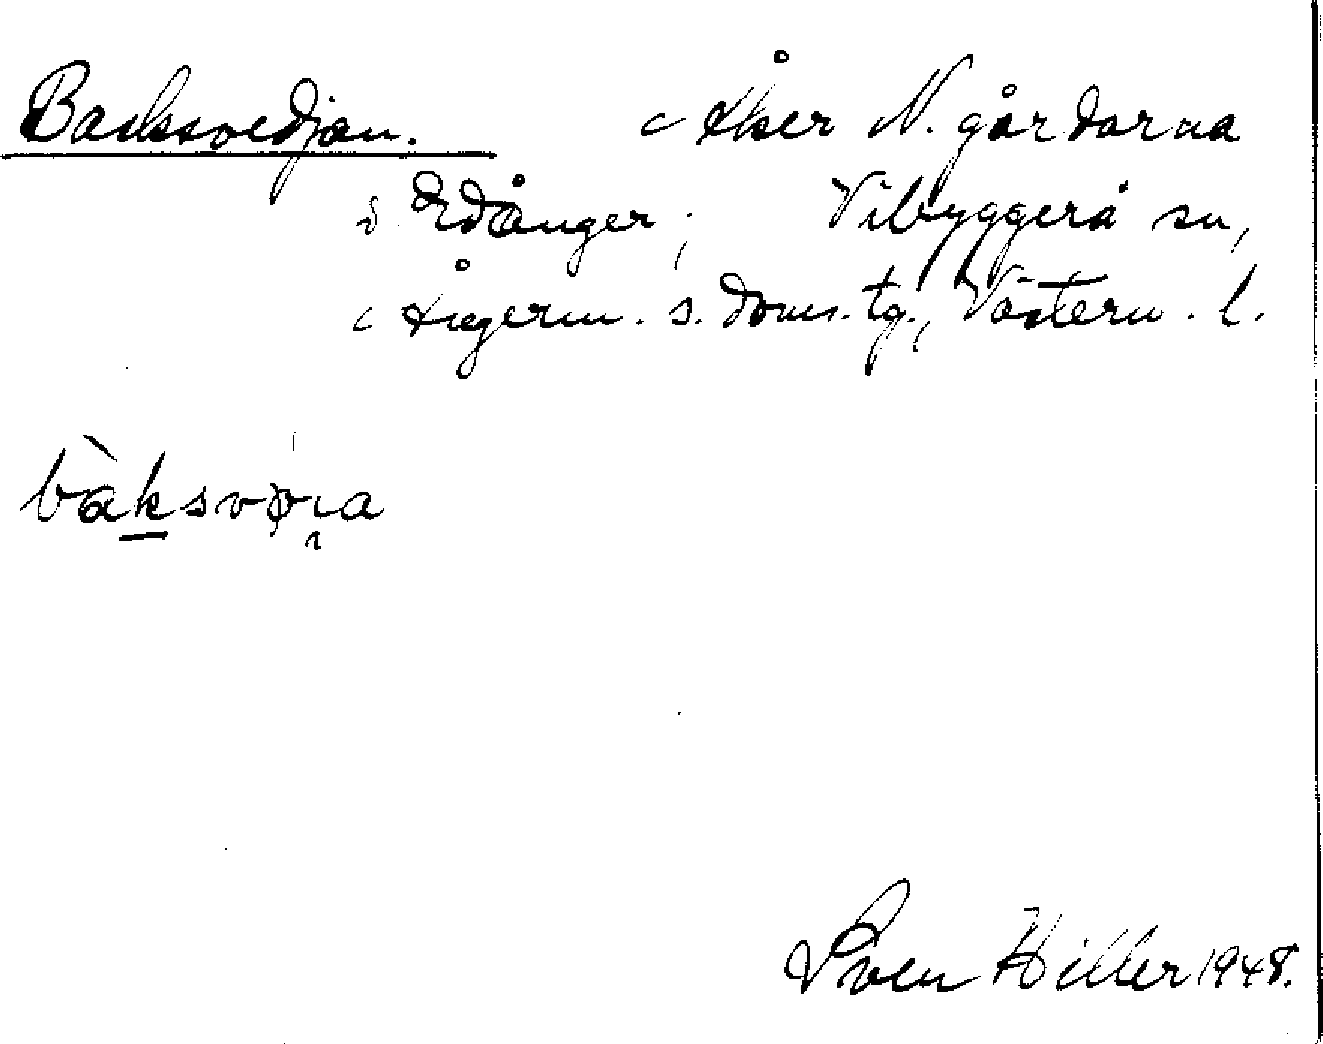 Backsvedjan. Åker N. gårdarna
i Edånger; Vibyggerå sn,
Ångerm. s. doms.tg., Västern. l.
bàksvøɩa
Sven Hiller 1948.